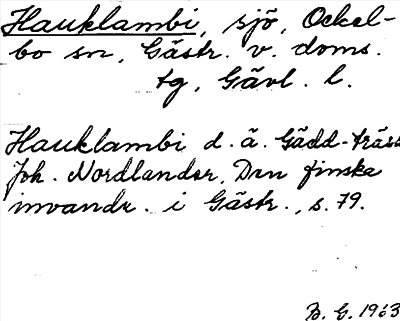 Hauklambi, sjö, Ockel-
bo sn, Gästr. v. doms.
tg, Gävl. l.
Hauklambi d. ä. Gädd-träsk
Joh. Nordlander, Den finska
invandr. i Gästr., s. 79.
B. E. 1963